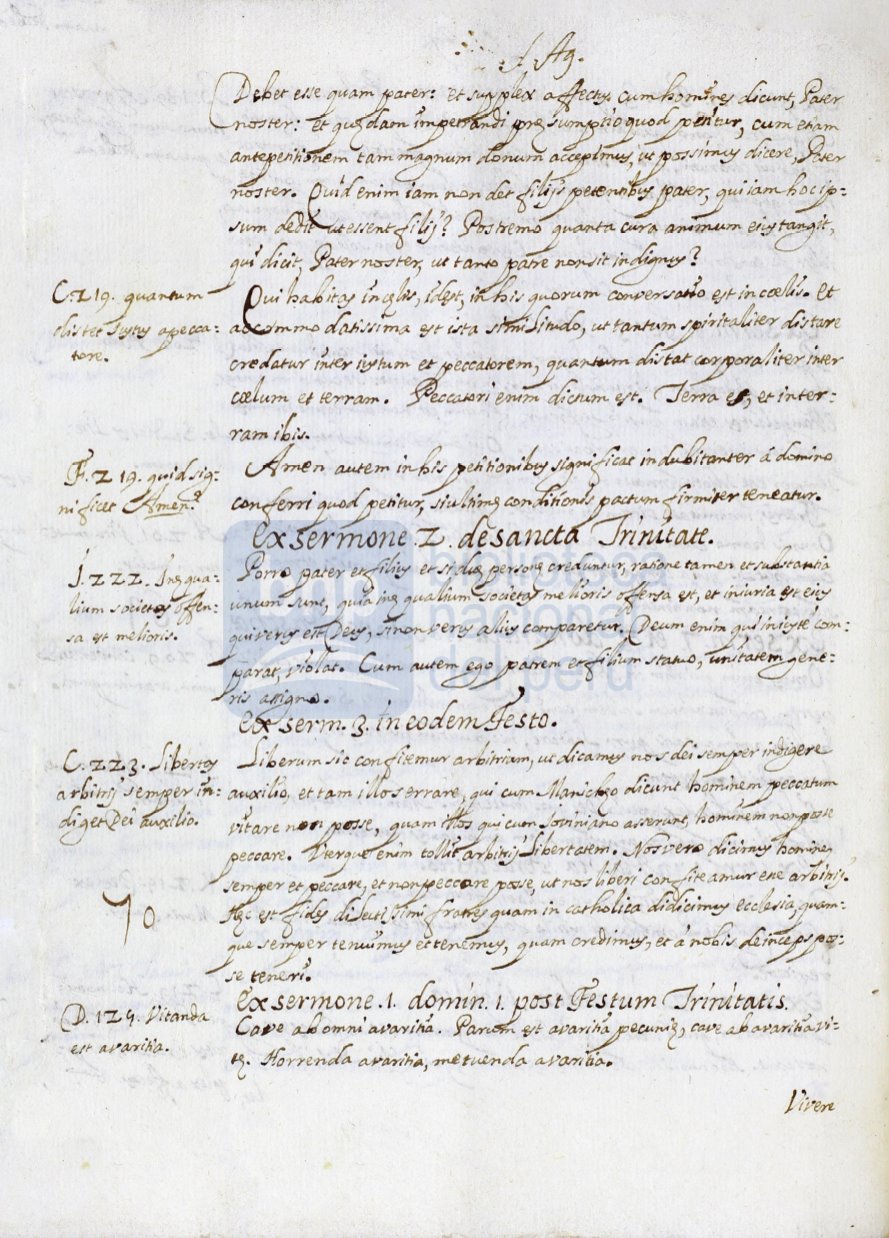 S. Ag.
Debet esse quam pater: et supplex affectus cum homines dicunt, Pater
noster: et quędam impetrandi pręsumptio quod petitur, cum etiam
ante petitionem tam magnum donum accepimus, ut possimus dicere, Pater
noster. Quid enim iam non det filijs petentibus pater, qui iam hoc ip-
sum dedit ut essent filij? Postremo quanta cura animum eius tangit,
qui dicit, Pater noster, ut tanto patre non sit indignus?
C. 219. quantum
distet iustus a pecca-
tore.
Qui habitas in cęlis, idest, in his quorum conversatio est in cœlis. Et
accommodatissima est ista similitudo, ut tantum spiritaliter distare
credatur inter iustum et peccatorem, quantum distat corporaliter inter
cœlum et terram. Peccatori enim dictum est. Terra es, et in ter-
ram ibis.
F. 219. quid sig-
nificet Amen?
Amen autem in his petitionibus significat indubitanter á domino
conferri quod petitur, si ultimę conditionis pactum firmiter teneatur.
Ex sermone. 2. de sancta Trinitate.
I. 222. Inęqua-
lium societas offen-
sa est melioris.
Porro pater et filius et si duę personę creduntur, ratione tamen et substantia
unum sunt, quia inęqualium societas melioris offensa est, et iniuria est eius
qui verus est Deus, si non verus alius comparetur. Deum enim qui iniustè com-
parat, violat. Cum autem ego patrem et filium statuo, unitatem gene-
ris assigno.
Ex serm. 3. in eodem Festo.
C. 223. Libertas
arbitrij semper in-
diget Dei auxilio.
Liberum sic confitemur arbitrium, ut dicamus nos dei semper indigere
auxilio, et tam illos errare, qui cum Manichęo dicunt hominem peccatum
vitare non posse, quam illos qui cum Joviniano asserunt, hominem non posse
peccare. Uterque enim tollit arbitrij libertatem. Nos vero dicimus homines
semper et peccare, et non peccare posse, ut nos liberi confiteamur esse arbitrij.
Hęc est fides dilectissimi fratres quam in catholica didicimus ecclesia, quam-
que semper tenuimus et tenemus, quam credimus, et á nobis deinceps pos-
se teneri.
70
Ex sermone. 1. domin. 1. post Festum Trinitatis.
D. 125. Vitanda
est avaritia.
Cave ab omni avaritia. Parum est avaritia pecunię, cave ab avaritia vi-
tę. Horrenda avaritia, metuenda avaritia.
Vivere
biblioteca
nacional
del perú